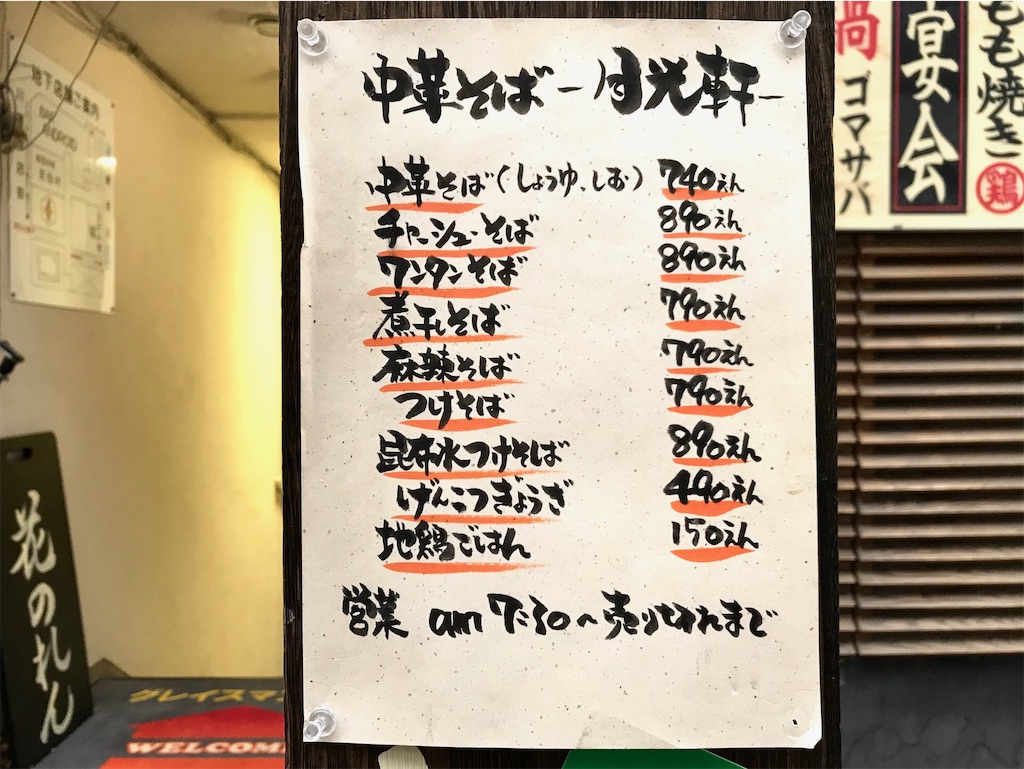 中華そば ー月光軒ー
中華そば(しょうゆ、しお) 740えん
チャーシューそば 890えん
ワンタンそば 890えん
煮干しそば 790えん
麻辣そば 790えん
つけそば 790えん
昆布水つけそば 890えん
げんこつぎょうざ 490えん
地鶏ごはん 150えん
営業 am 7:30〜売り切れまで
もも焼き
鶏
宴会
ゴマサバ
地下店舗ご案内
花のれん
グレイスマ
WELCOME